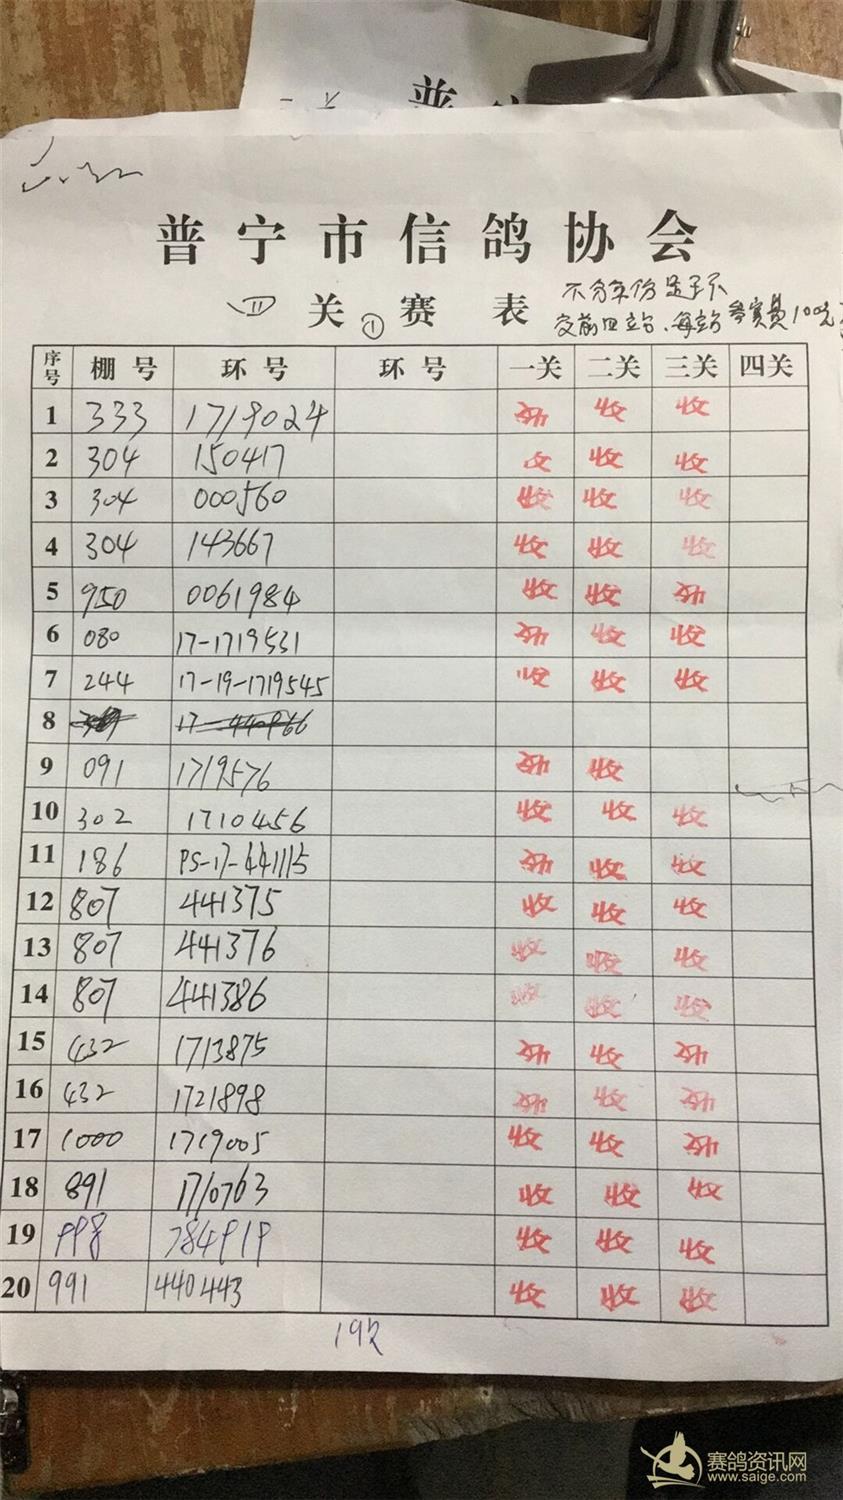 普宁市信鸽协会
四关赛表 ①
不分年份
交前四站、每站参赛费100元
序号 棚号 环号 环号 一关 二关 三关 四关
1 333 1719024 收 收 收
2 304 150417 收 收 收
3 304 000560 收 收 收
4 304 143667 收 收 收
5 950 0061984 收 收 收
6 080 17-1719531 收 收 收
7 244 17-19-1719545 收 收 收
8
9 091 1719576 收 收
10 302 1710456 收 收 收
11 186 PS-17-441115 收 收 收
12 807 441375 收 收 收
13 807 441376 收 收 收
14 807 441386 收 收 收
15 432 1713875 收 收 收
16 432 1721898 收 收 收
17 1000 1719005 收 收 收
18 891 1710763 收 收 收
19 998 784919 收 收 收
20 991 440443 收 收 收
192
赛鸽资讯网
www.saige.com